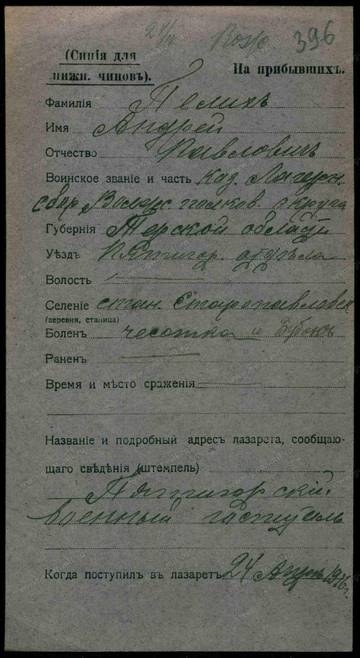 396
(Синія для нижн. чиновъ).
На прибывшихъ.
Фамилія Пелихъ
Имя Андрей
Отчество Павловичъ
Воинское званіе и часть Каз.
сбор. полков. округа
Губернія Терской области
Уѣздъ Пятигор. отдѣла
Волость
Селеніе стан. Старопавловск
(деревня, станица)
Боленъ чесотка и
Раненъ
Время и мѣсто сраженія
Названіе и подробный адресъ лазарета, сообщаю-
щаго свѣдѣнія (штемпель)
Пятигорскій
военный госпиталь
Когда поступилъ въ лазаретъ 24 Апрѣ 1916 г.